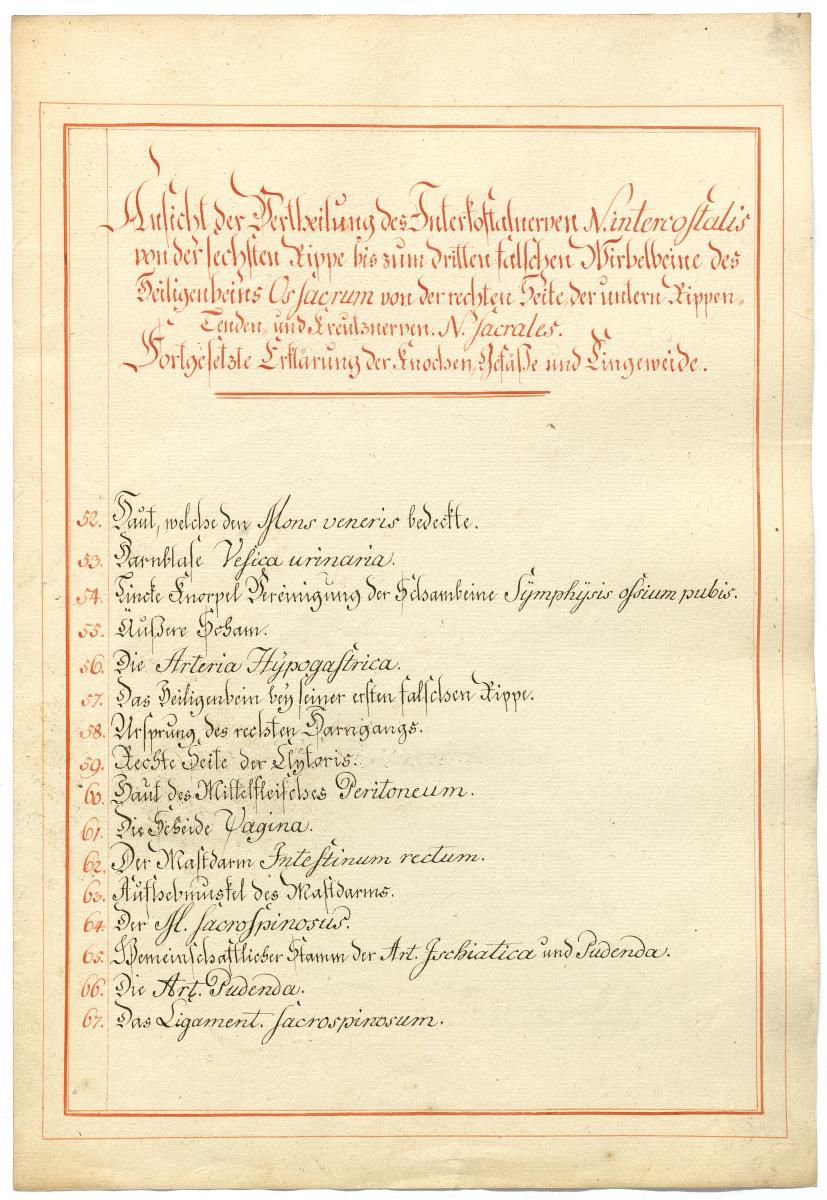 Ansicht der Vertheilung des Interkostalnerven N. intercostalis
von der sechsten Rippe bis zum dritten falschen Wirbelbeine des
Heiligenbeins Os sacrum von der rechten Seite, der untern Rippen-
Lenden- und Kreutznerven. N. sacrales.
Fortgesetzte Erklärung der Knochen, Gefäße und Eingeweide.
52. Haut, welche den Mons veneris bedeckte.
53. Harnblase Vesica urinaria.
54. Lincke Knorpel Vereinigung der Schambeine Sÿmphÿsis ossium pubis.
55. Äußere Scham.
56. Die Arteria Hÿpogastrica.
57. Das Heiligenbein beÿ seiner ersten falschen Rippe.
58. Ursprung des rechten Harngangs.
59. Rechte Seite der Clÿtoris.
60. Haut des Mittelfleisches Peritoneum.
61. Die Scheide Vagina.
62. Der Mastdarm Intestinum rectum.
63. Aufhebmuskel des Mastdarms.
64. Der M. sacrospinosus.
65. Gemeinschaftlicher Stamm der Art. Ischiatica und Pudenda.
66. Die Art. Pudenda.
67. Das Ligament. sacrospinosum.